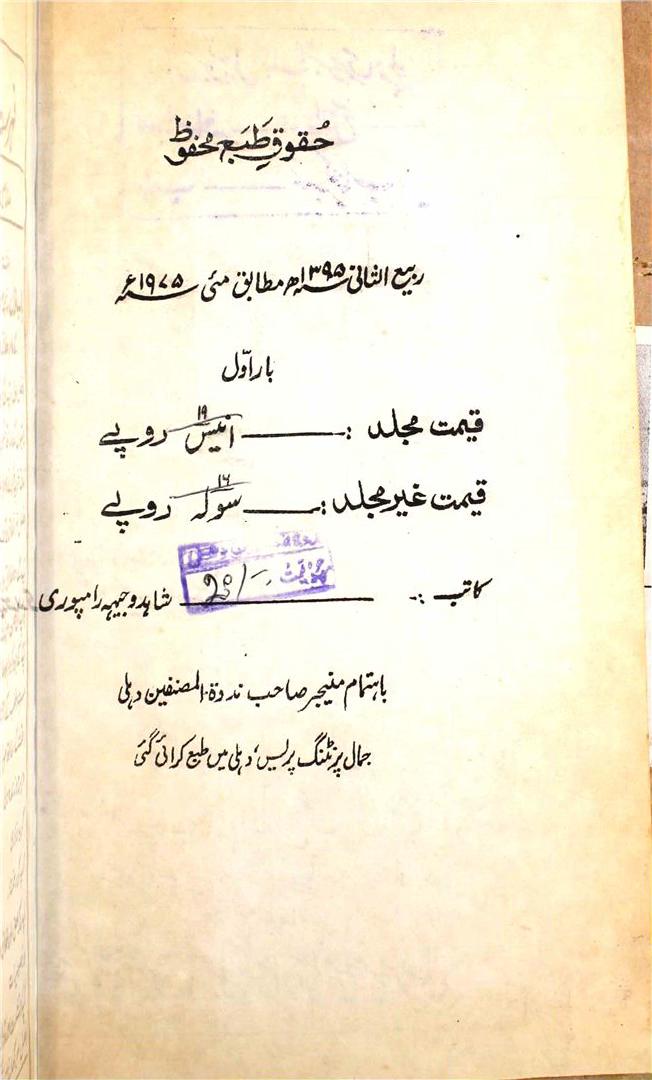 حُقوقِ طَبع محفوظ
ربیع الثانی ۱۳۹۵ھ مطابق مئی ۱۹۷۵ء
بار اوّل
قیمت مجلد :ــــــ انیس ۱۹ روپے
قیمت غیر مجلد :ــــــ سولہ ۱۶ روپے
قیمت
28/-
کاتب :- ــــــ شاہد وجیہہ رامپوری
باہتمام منیجر صاحب ندوۃ المصنفین دہلی
جمال پرنٹنگ پریس، دہلی میں طبع کرائی گئی